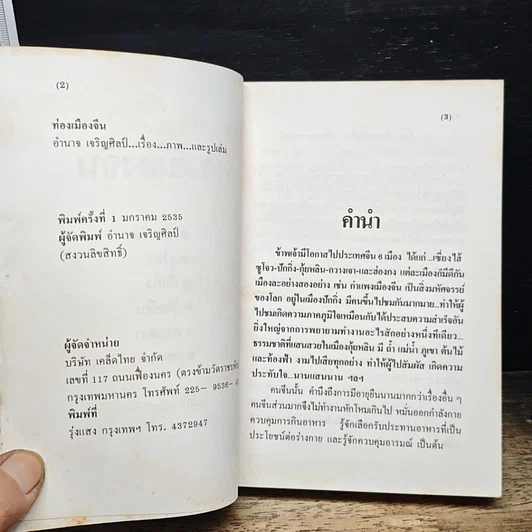 (2)
ท่องเมืองจีน
อำนาจ เจริญศิลป์...เรื่อง...ภาพ...และรูปเล่ม
พิมพ์ครั้งที่ 1 มกราคม 2535
ผู้จัดพิมพ์ อำนาจ เจริญศิลป์
(สงวนลิขสิทธิ์)
ผู้จัดจำหน่าย
บริษัท เคล็ดไทย จำกัด
เลขที่ 117 ถนนเฟื่องนคร (ตรงข้ามวัดราชบพิธ
กรุงเทพมหานคร โทรศัพท์ 225- 9536-
พิมพ์ที่
รุ่งแสง กรุงเทพฯ โทร. 4372947
(3)
คำนำ
ข้าพเจ้ามีโอกาสไปประเทศจีน 6 เมือง ได้แก่...เซี่ยงไฮ้
ซูโจว-ปักกิ่ง-กุ้ยหลิน-กวางเจา-และฮ่องกง แต่ละเมืองก็มีดีกัน
เมืองละอย่างสองอย่าง เช่น กำแพงเมืองจีน เป็นสิ่งมหัศจรรย์
ของโลก อยู่ในเมืองปักกิ่ง มีคนขึ้นไปชมกันมากมาย...ทำให้ผู้
ไปชมเกิดความภาคภูมิใจเหมือนกับได้ประสบความสำเร็จอัน
ยิ่งใหญ่จากการพยายามทำงานอะไรสักอย่างหนึ่งทีเดียว...
ธรรมชาติที่แสนสวยในเมืองกุ้ยหลิน มี ถ้ำ แม่น้ำ ภูเขา ต้นไม้
และท้องฟ้า งามไปเสียทุกอย่าง ทำให้ผู้ไปสัมผัส เกิดความ
ประทับใจ...นานแสนนาน ฯลฯ
คนจีนนั้น คำนึงถึงการมีอายุยืนนานมากกว่าเรื่องอื่น ๆ
คนจีนส่วนมากจึงไม่ทำงานหักโหมเกินไป หมั่นออกกำลังกาย
ควบคุมการกินอาหาร รู้จักเลือกรับประทานอาหารที่เป็น
ประโยชน์ต่อร่างกาย และรู้จักควบคุมอารมณ์ เป็นต้น